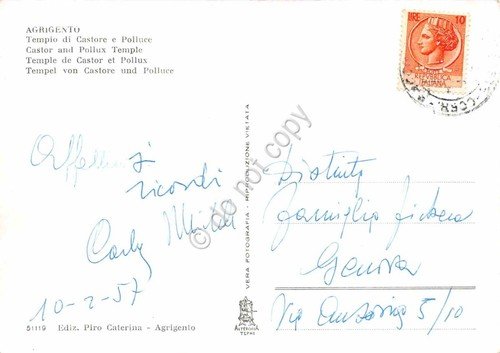 AGRIGENTO
Tempio di Castore e Polluce
Castor and Pollux Temple
Temple de Castor et Pollux
Tempel von Castore und Polluce
LIRE 10
REPUBBLICA
ITALIANA
ricordi
Carlo
10-2-57
51119 Ediz. Piro Caterina - Agrigento
VERA FOTOGRAFIA - RIPRODUZIONE VIETATA
do not copy
Distinta
famiglia
Genova
Via 5/10